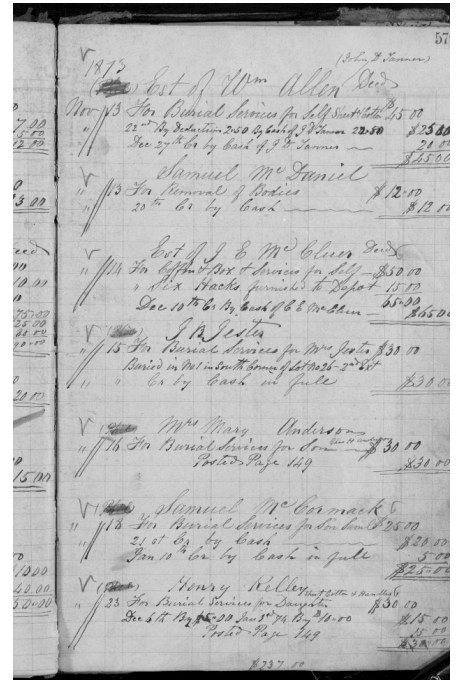 57
(John D Tanner)
1873
Est of Wm Allen Decd
Nov 13 For Burial Services for Self 45 00
22nd By Deduction 2.50 By Cash of J D Tanner 22.50 $25 00
Dec 27th Cr by Cash of J D Tanner 20 00
$45 00
Samuel McDaniel
" 13 For Removal of Bodies $12.00
20th Cr by Cash $12 00
Est of J E McCluer Decd
" 14 For Coffin & Box & Services for Self $50 00
" Six Hacks furnished to Depot 15 00
65.00
Dec 10th Cr By Cash of C E McCluer $65 00
J R Jester
" 15 For Burial Services for Mrs Jester $30 00
Buried in Not in South Corner of Lot No 26 - 2nd Ext
" " Cr by Cash in full $30 00
Mrs Mary Anderson
" 16 For Burial Services for Son $30 00
Posted Page 149 $30 00
Samuel McCormack
" 18 For Burial Services for Son Saml $25 00
21st Cr by Cash $20 00
Jan 10th Cr by Cash in full 5 00
$25 00
Henry Kelley
" 23 For Burial Services for Daughter $30 00
Dec 6th By $5.00 Jan 3rd 74 By $10.00 $15 00
Posted Page 149 15 00
$30 00
$237 00
7 00
5 00
12 00
3 00
10 00
75 00
25 00
60 00
90 00
20 00
15 00
10 00
40 00
50 00